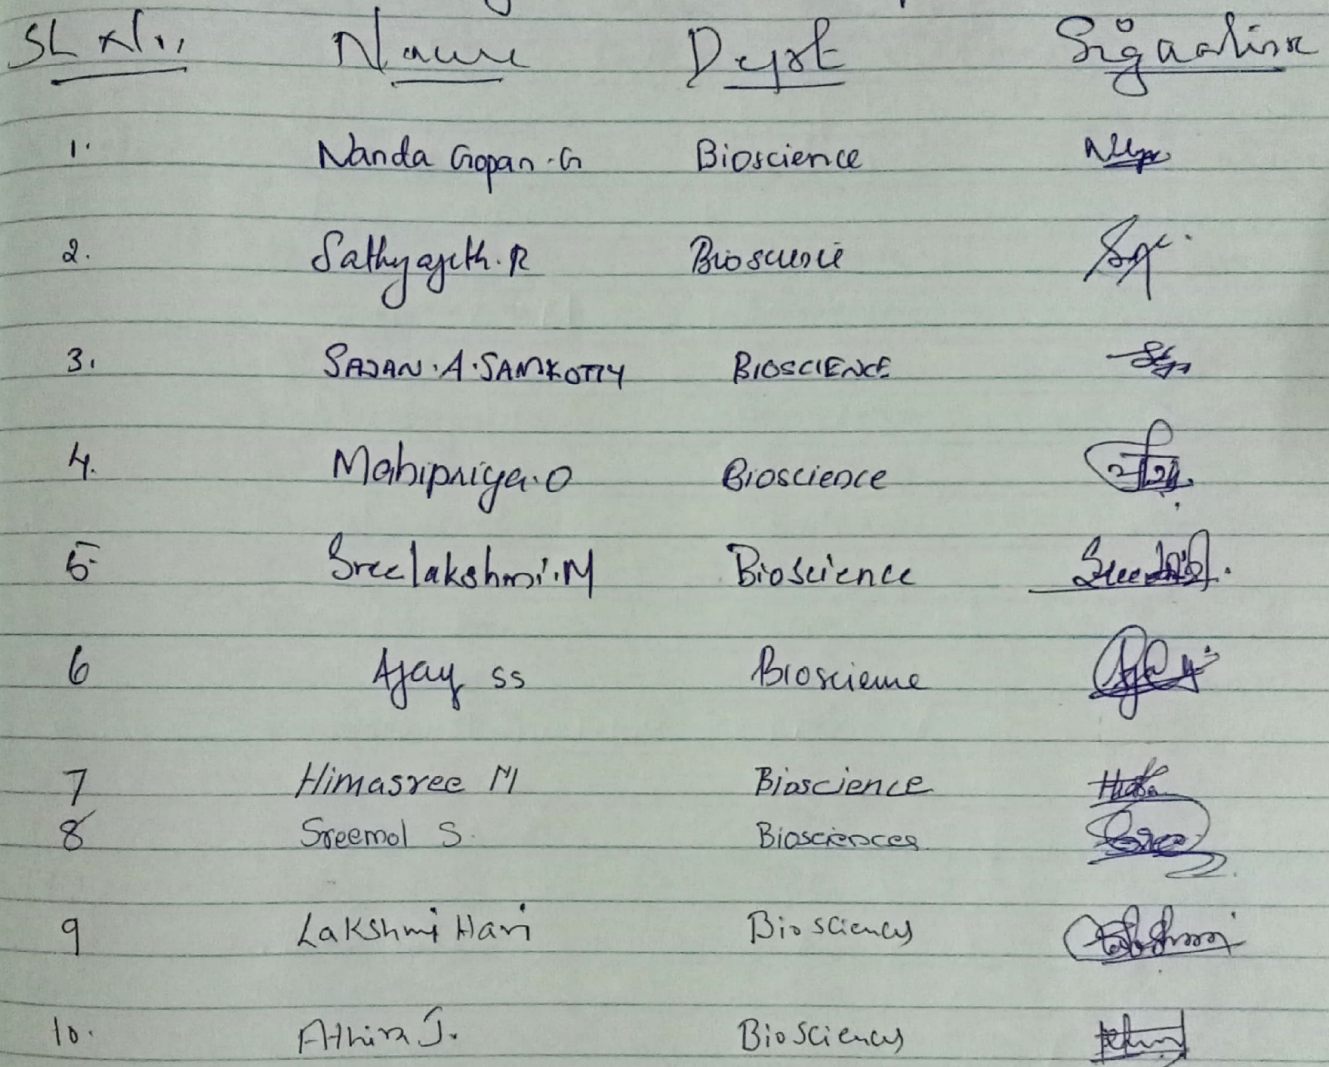 SL No. Name Dept Signature
1. Nanda Gopan.G Bioscience
2. Sathyajith.R Bioscience
3. SAJAN.A.SAMKOTTY BIOSCIENCE
4. Mahipriya.O Bioscience
5 Sreelakshmi.M Bioscience Sreelakshmi.
6 Ajay SS Bioscience Ajay
7 Himasree M Bioscience
8 Sreemol S. Biosciences
9 Lakshmi Hari Biosciences Lakshmi
10. Athira J. Biosciences